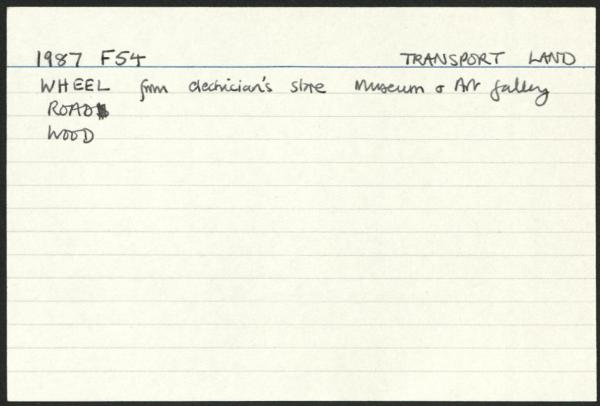 1987 F54 TRANSPORT LAND
WHEEL from electrician's store Museum & Art Gallery
ROAD
WOOD